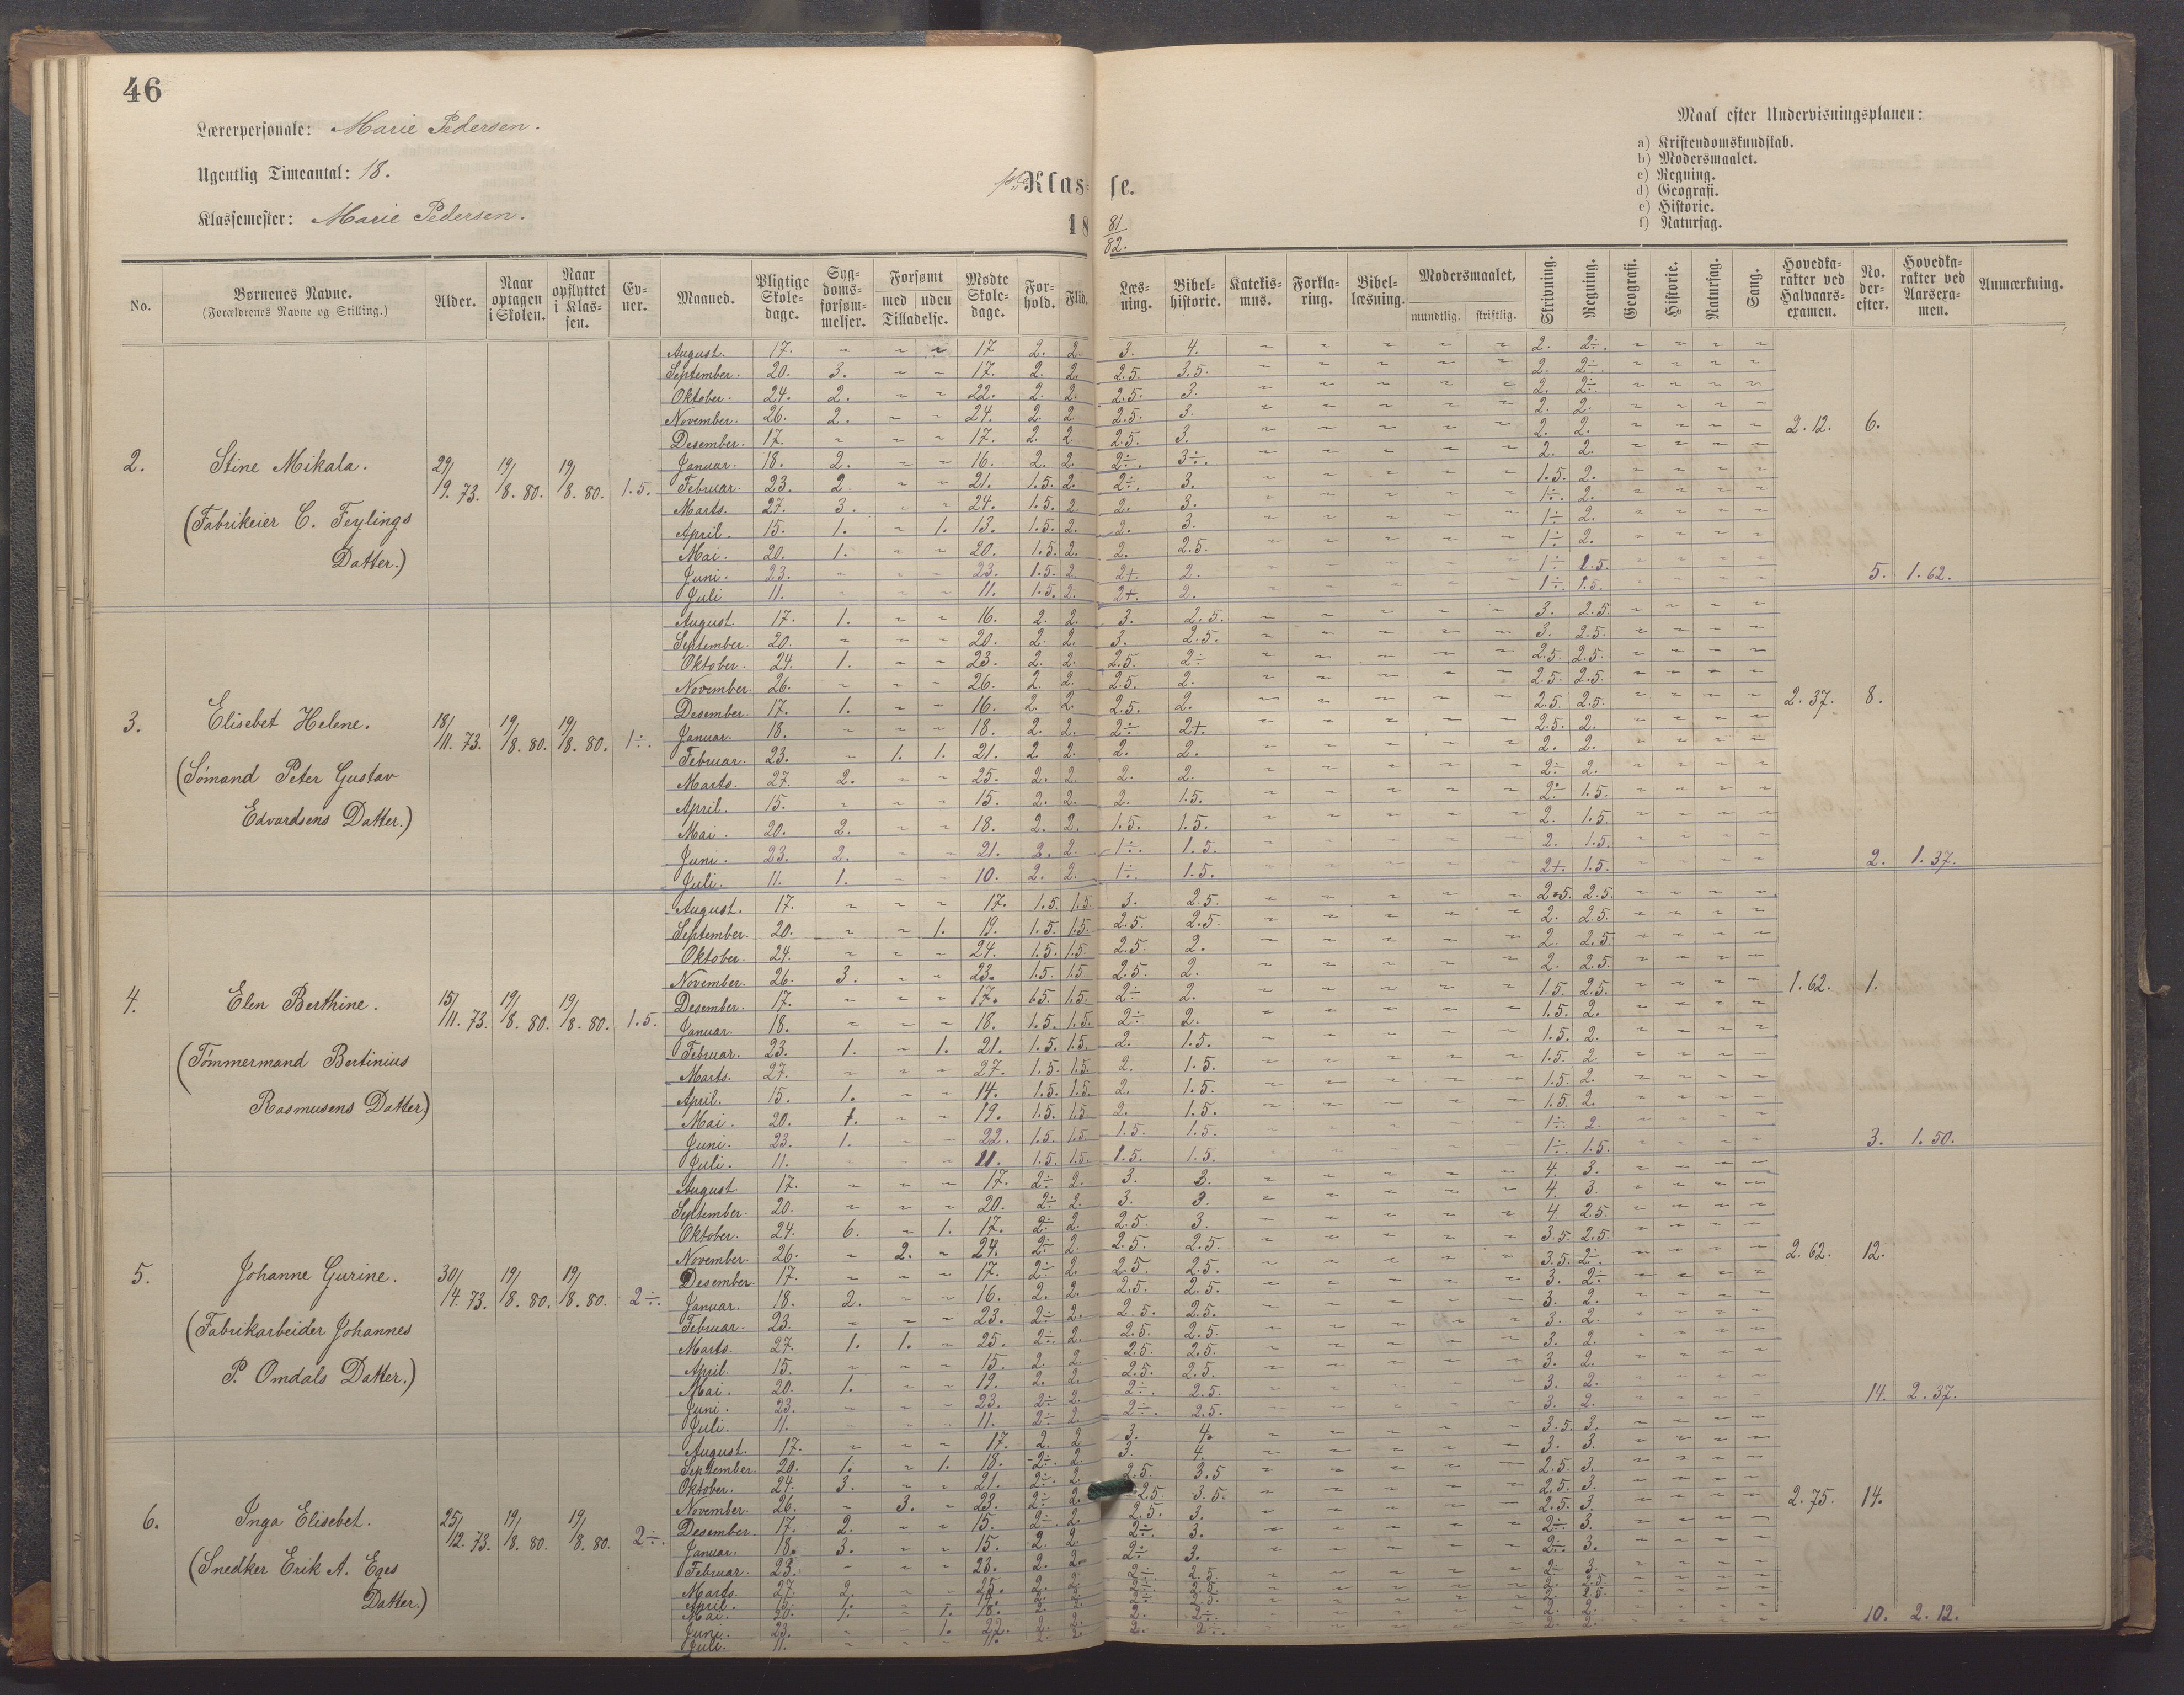 46
Lærerpersonale: Marie Pedersen.
Ugentlig Timeantal: 18.
Klassemester: Marie Pedersen.
1ste Klas- se.
18 81/82.
Maal efter Undervisningsplanen:
a) Kristendomskundskab.
b) Modersmaalet.
c) Regning.
d) Geografi.
e) Historie.
f) Naturfag.
No. | Børnenes Navne. (Forældrenes Navne og Stilling.) | Alder. | Naar optagen i Skolen. | Naar opflyttet i Klassen. | Evner. | Maaned. | Pligtige Skoledage. | Sygdomsforsømmelser. | Forsømt med Tilladelse. | uden | Mødte Skoledage. | Forhold. | Flid. | Læsning. | Bibelhistorie. | Katekismus. | Forklaring. | Bibellæsning. | Modersmaalet, mundtlig. | skriftlig. | Skrivning. | Regning. | Geografi. | Historie. | Naturfag. | Sang. | Hovedkarakter ved Halvaarsexamen. | No. derefter. | Hovedkarakter ved Aarsexamen. | Anmærkning.
2. Stine Mikala. (Fabrikeier C. Feylings Datter.) 29/9. 73. 19/8. 80. 19/8. 80. 1.5.
August. 17. ~ ~ ~ 17 2. 2. 3. 4. ~ ~ ~ ~ ~ 2. 2÷. ~ ~ ~ ~
September. 20. 3. ~ ~ 17. 2. 2. 2.5. 3.5. ~ ~ ~ ~ ~ 2. 2÷. ~ ~ ~ ~
Oktober. 24. 2. ~ ~ 22. 2. 2. 2.5. 3. ~ ~ ~ ~ ~ 2. 2÷. ~ ~ ~ ~
November. 26. 2. ~ ~ 24. 2. 2. 2.5. 3. ~ ~ ~ ~ ~ 2. 2. ~ ~ ~ ~
Desember. 17. ~ ~ ~ 17. 2. 2. 2.5. 3. ~ ~ ~ ~ ~ 2. 2. ~ ~ ~ ~ 2.12. 6.
Januar. 18. 2. ~ ~ 16. 2. 2. 2÷. 3÷. ~ ~ ~ ~ ~ 2. 2. ~ ~ ~ ~
Februar. 23. 2. ~ ~ 21. 1.5. 2. 2÷. 3. ~ ~ ~ ~ ~ 1.5. 2. ~ ~ ~ ~
Marts. 27. 3. ~ ~ 24. 1.5. 2. 2. 3. ~ ~ ~ ~ ~ 1÷. 2. ~ ~ ~ ~
April. 15. 1. ~ 1. 13. 1.5. 2. 2. 3. ~ ~ ~ ~ ~ 1÷ 2. ~ ~ ~ ~
Mai. 20. 1. ~ ~ 20. 1.5. 2. 2. 2.5. ~ ~ ~ ~ ~ 1÷ 2. ~ ~ ~ ~
Juni. 23. ~ ~ ~ 23. 1.5. 2. 2+. 2. ~ ~ ~ ~ ~ 1÷ 1.5. ~ ~ ~ ~ 5. 1.62.
Juli 11. ~ ~ ~ 11. 1.5. 2. 2+. 2. ~ ~ ~ ~ ~ 1÷. 1.5. ~ ~ ~ ~
3. Elisebet Helene. (Sömand Peter Gustav Edvardsens Datter.) 18/11. 73. 19/8. 80. 19/8. 80. 1÷.
August 17. 1. ~ ~ 16. 2. 2. 3. 2.5. ~ ~ ~ ~ ~ 3. 2.5. ~ ~ ~ ~
September. 20. ~ ~ ~ 20. 2. 2. 3. 2.5. ~ ~ ~ ~ ~ 3. 2.5. ~ ~ ~ ~
Oktober. 24. 1. ~ ~ 23. 2. 2. 2.5. 2÷ ~ ~ ~ ~ ~ 2.5. 2.5. ~ ~ ~ ~
November. 26. ~ ~ ~ 26. 2. 2. 2.5. 2. ~ ~ ~ ~ ~ 2.5. 2.5. ~ ~ ~ ~
Desember. 17. 1. ~ ~ 16. 2. 2. 2.5. 2. ~ ~ ~ ~ ~ 2.5. 2.5. ~ ~ ~ ~ 2.37. 8.
Januar. 18. ~ ~ ~ 18. 2. 2. 2÷ 2+. ~ ~ ~ ~ ~ 2.5. 2. ~ ~ ~ ~
Februar. 23. ~ 1. 1. 21. 2. 2. 2. 2. ~ ~ ~ ~ ~ 2. 2. ~ ~ ~ ~
Marts. 27. 2. ~ ~ 25. 2. 2. 2. 2. ~ ~ ~ ~ ~ 2÷ 2. ~ ~ ~ ~
April. 15. ~ ~ ~ 15. 2. 2. 2. 1.5. ~ ~ ~ ~ ~ 2÷ 1.5. ~ ~ ~ ~
Mai. 20. 2. ~ ~ 18. 2. 2. 1.5. 1.5. ~ ~ ~ ~ ~ 2. 1.5. ~ ~ ~ ~
Juni. 23. 2. ~ ~ 21. 2. 2. 1÷. 1.5. ~ ~ ~ ~ ~ 2. 1.5. ~ ~ ~ ~ 2. 1.37.
Juli. 11. 1. ~ ~ 10. 2. 2. 1÷. 1.5. ~ ~ ~ ~ ~ 2+. 1.5. ~ ~ ~ ~
4. Elen Berthine. (Tömmermand Bertinius Rasmusens Datter) 15/11. 73. 19/8. 80. 19/8. 80. 1.5.
August. 17. ~ ~ ~ 17. 1.5. 1.5 3. 2.5. ~ ~ ~ ~ ~ 2.5. 2.5. ~ ~ ~ ~
September. 20. ~ ~ 1. 19. 1.5. 1.5. 2.5. 2.5. ~ ~ ~ ~ ~ 2. 2.5. ~ ~ ~ ~
Oktober. 24. ~ ~ ~ 24. 1.5. 1.5. 2.5. 2. ~ ~ ~ ~ ~ 2. 2.5 ~ ~ ~ ~
November. 26. 3. ~ ~ 23. 1.5. 1.5 2.5. 2. ~ ~ ~ ~ ~ 2. 2.5. ~ ~ ~ ~
Desember. 17. ~ ~ ~ 17. 1.5. 1.5. 2÷ 2. ~ ~ ~ ~ ~ 1.5. 2.5. ~ ~ ~ ~ 1.62. 1.
Januar. 18. ~ ~ ~ 18. 1.5. 1.5. 2÷ 2. ~ ~ ~ ~ ~ 1.5. 2. ~ ~ ~ ~
Februar. 23. 1. ~ 1. 21. 1.5. 1.5. 2. 1.5. ~ ~ ~ ~ ~ 1.5. 2. ~ ~ ~ ~
Marts. 27. ~ ~ ~ 27. 1.5. 1.5. 2. 1.5. ~ ~ ~ ~ ~ 1.5. 2. ~ ~ ~ ~
April. 15. 1. ~ ~ 14. 1.5. 1.5. 2. 1.5. ~ ~ ~ ~ ~ 1.5. 2. ~ ~ ~ ~
Mai. 20. 1. ~ ~ 19. 1.5. 1.5. 2. 1.5. ~ ~ ~ ~ ~ 1.5. 2. ~ ~ ~ ~
Juni. 23. 1. ~ ~ 22. 1.5. 1.5. 1.5. 1.5. ~ ~ ~ ~ ~ 1÷ 2. ~ ~ ~ ~ 3. 1.50.
Juli. 11. ~ ~ ~ 11. 1.5. 1.5. 1.5. 1.5. ~ ~ ~ ~ ~ 1÷. 1.5. ~ ~ ~ ~
5. Johanne Gurine. (Fabrikarbeider Johannes P. Omdals Datter.) 30/14. 73. 19/8. 80. 19/8. 80. 2÷.
August 17. ~ ~ ~ 17. 2÷ 2. 3. 3. ~ ~ ~ ~ ~ 4. 3. ~ ~ ~ ~
September. 20. ~ ~ ~ 20. 2÷ 2. 3. 3. ~ ~ ~ ~ ~ 4. 3. ~ ~ ~ ~
Oktober. 24. 6. ~ 1. 17. 2÷ 2. 2.5. 3. ~ ~ ~ ~ ~ 4. 2.5. ~ ~ ~ ~
November. 26. ~ 2. ~ 24. 2÷ 2. 2.5. 2.5. ~ ~ ~ ~ ~ 3.5. 2.5. ~ ~ ~ ~
Desember 17. ~ ~ ~ 17. 2÷ 2. 2.5. 2.5. ~ ~ ~ ~ ~ 3.5. 2÷. ~ ~ ~ ~ 2.62. 12.
Januar. 18. 2. ~ ~ 16. 2. 2. 2.5. 2.5. ~ ~ ~ ~ ~ 3. 2÷ ~ ~ ~ ~
Februar. 23. ~ ~ ~ 23. 2÷ 2. 2.5. 2.5. ~ ~ ~ ~ ~ 3. 2. ~ ~ ~ ~
Marts. 27. 1. 1. ~ 25. 2÷. 2. 2.5. 2.5. ~ ~ ~ ~ ~ 3. 2. ~ ~ ~ ~
April. 15. ~ ~ ~ 15. 2. 2. 2.5. 2.5. ~ ~ ~ ~ ~ 3. 2. ~ ~ ~ ~
Mai. 20. 1. ~ ~ 19. 2. 2. 2.5. 2.5. ~ ~ ~ ~ ~ 3. 2. ~ ~ ~ ~
Juni. 23. ~ ~ ~ 23. 2÷ 2. 2÷. 2.5. ~ ~ ~ ~ ~ 3. 2. ~ ~ ~ ~ 14. 2.37.
Juli. 11. ~ ~ ~ 11. 2÷ 2. 2÷. 2.5. ~ ~ ~ ~ ~ 3. 2. ~ ~ ~ ~
6. Inga Elisebet. (Snedker Erik A. Eges Datter.) 25/12. 73. 19/8. 80. 19/8. 80. 2÷.
August. 17. ~ ~ ~ 17. 2. 2. 3. 4. ~ ~ ~ ~ ~ 3.5. 3. ~ ~ ~ ~
September. 20. 1. ~ 1. 18. 2÷. 2. 3. 4. ~ ~ ~ ~ ~ 3. 3. ~ ~ ~ ~
Oktober. 24. 3. ~ ~ 21. 2÷. 2. 2.5. 3.5 ~ ~ ~ ~ ~ 2.5. 3. ~ ~ ~ ~
November. 26. ~ 3. ~ 23. 2÷ 2. 2.5. 3.5. ~ ~ ~ ~ ~ 2.5. 3. ~ ~ ~ ~
Desember. 17. 2. ~ ~ 15. 2÷. 2. 2.5. 3. ~ ~ ~ ~ ~ 2.5. 3. ~ ~ ~ ~ 2.75. 14.
Januar. 18. 3. ~ ~ 15. 2. 2. 2÷. 3. ~ ~ ~ ~ ~ 2÷. 3. ~ ~ ~ ~
Februar. 23. ~ ~ ~ 23. 2. 2. 2÷ 3. ~ ~ ~ ~ ~ 2÷. 3. ~ ~ ~ ~
Marts. 27. 2. ~ ~ 25. 2. 2. 2÷. 2.5. ~ ~ ~ ~ ~ 2÷ 3. ~ ~ ~ ~
April. 15. 1. ~ ~ 14. 2. 2. 2÷. 2.5. ~ ~ ~ ~ ~ 2. 2.5. ~ ~ ~ ~
Mai. 20. 1. ~ 1. 18. 2. 2. 2÷. 2.5. ~ ~ ~ ~ ~ 2. 2.5. ~ ~ ~ ~
Juni. 23. ~ ~ 1. 22. 2. 2. 2. 2÷. ~ ~ ~ ~ ~ 2. 2. ~ ~ ~ ~ 10. 2.12.
Juli. 11. ~ ~ ~ 11. 2. 2. 2. 2÷. ~ ~ ~ ~ ~ 2. 2. ~ ~ ~ ~